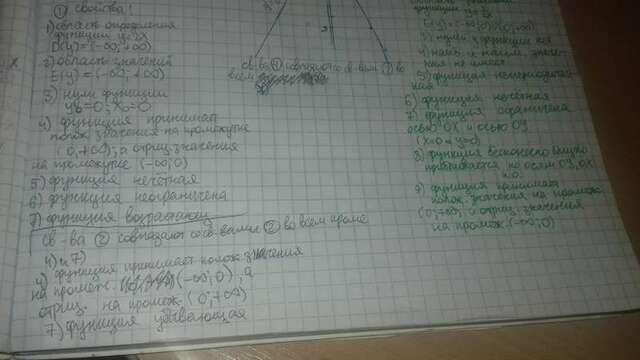 ① Свойства!
1) область определения
функции y=2x
D(y)=(-∞;+∞)
2) область значений
E(y)=(-∞;+∞)
3) нули функции
y=0; x=0
4) функция принимает
полож. значения на промежутке
(0;+∞); а отриц. значения
на промежутке (-∞;0)
5) функция нечётная
6) функция неограничена
7) функция возрастающ
св-ва ② совпадают со св-вами ② во всем кроме
4) и 7)
4) функция принимает полож. значения
на промеж. (-∞;0), а
отриц. на промеж. (0;+∞)
7) функция убывающая
св-ва ④ совпадают св-вам ② во
всем
функции
E(y)=(-∞;0)∪(0;+∞)
3) нули функции нет
4) наиб. и наим. значе-
ния не имеет
6) функция нечётная
7) функция ограничена
осью OX и осью OY
(x=0 и y=0)
8) функция бесконечно
по осям OY, OX
9) функция принимает
полож. значения на промеж.
(0;+∞), а отриц. значения
на промеж. (-∞;0)